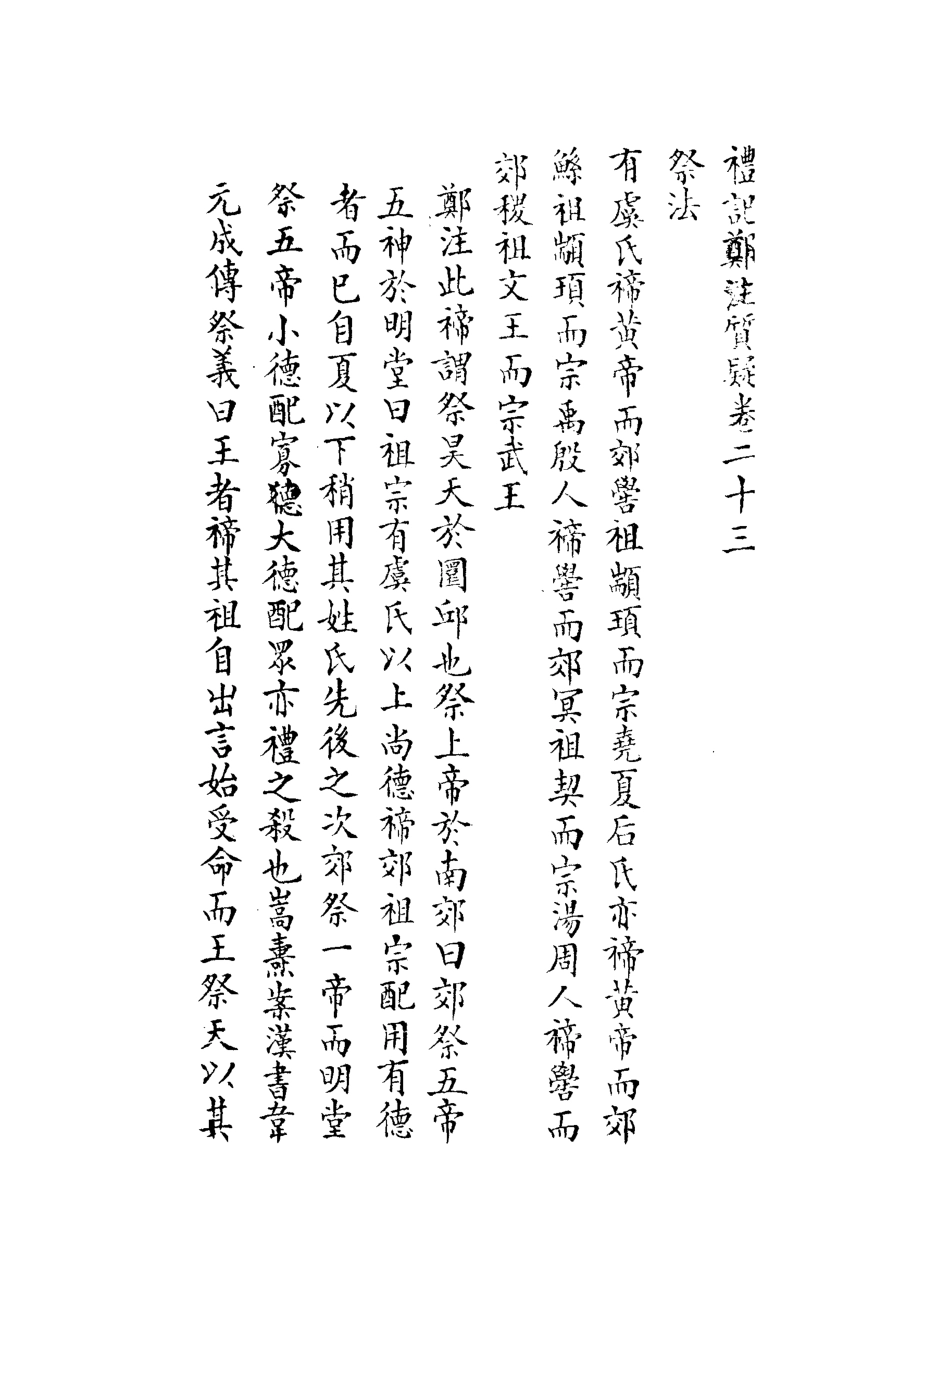 禮記鄭注質疑卷二十三
祭法
有虞氏禘黄帝而郊嚳祖顓頊而宗堯夏后氏亦禘黄帝而郊
鯀祖顓頊而宗禹殷人禘嚳而郊冥祖契而宗湯周人禘嚳而
郊稷祖文王而宗武王
鄭注此禘謂祭昊天於圜邱也祭上帝於南郊曰郊祭五帝
五神於明堂曰祖宗有虞氏以上尚德禘郊祖宗配用有德
者而已自夏以下稍用其姓氏先後之次郊祭一帝而明堂
祭五帝小德配寡德大德配眾亦禮之殺也嵩燾案漢書韋
元成傳祭義曰王者禘其祖自出言始受命而王祭天以其